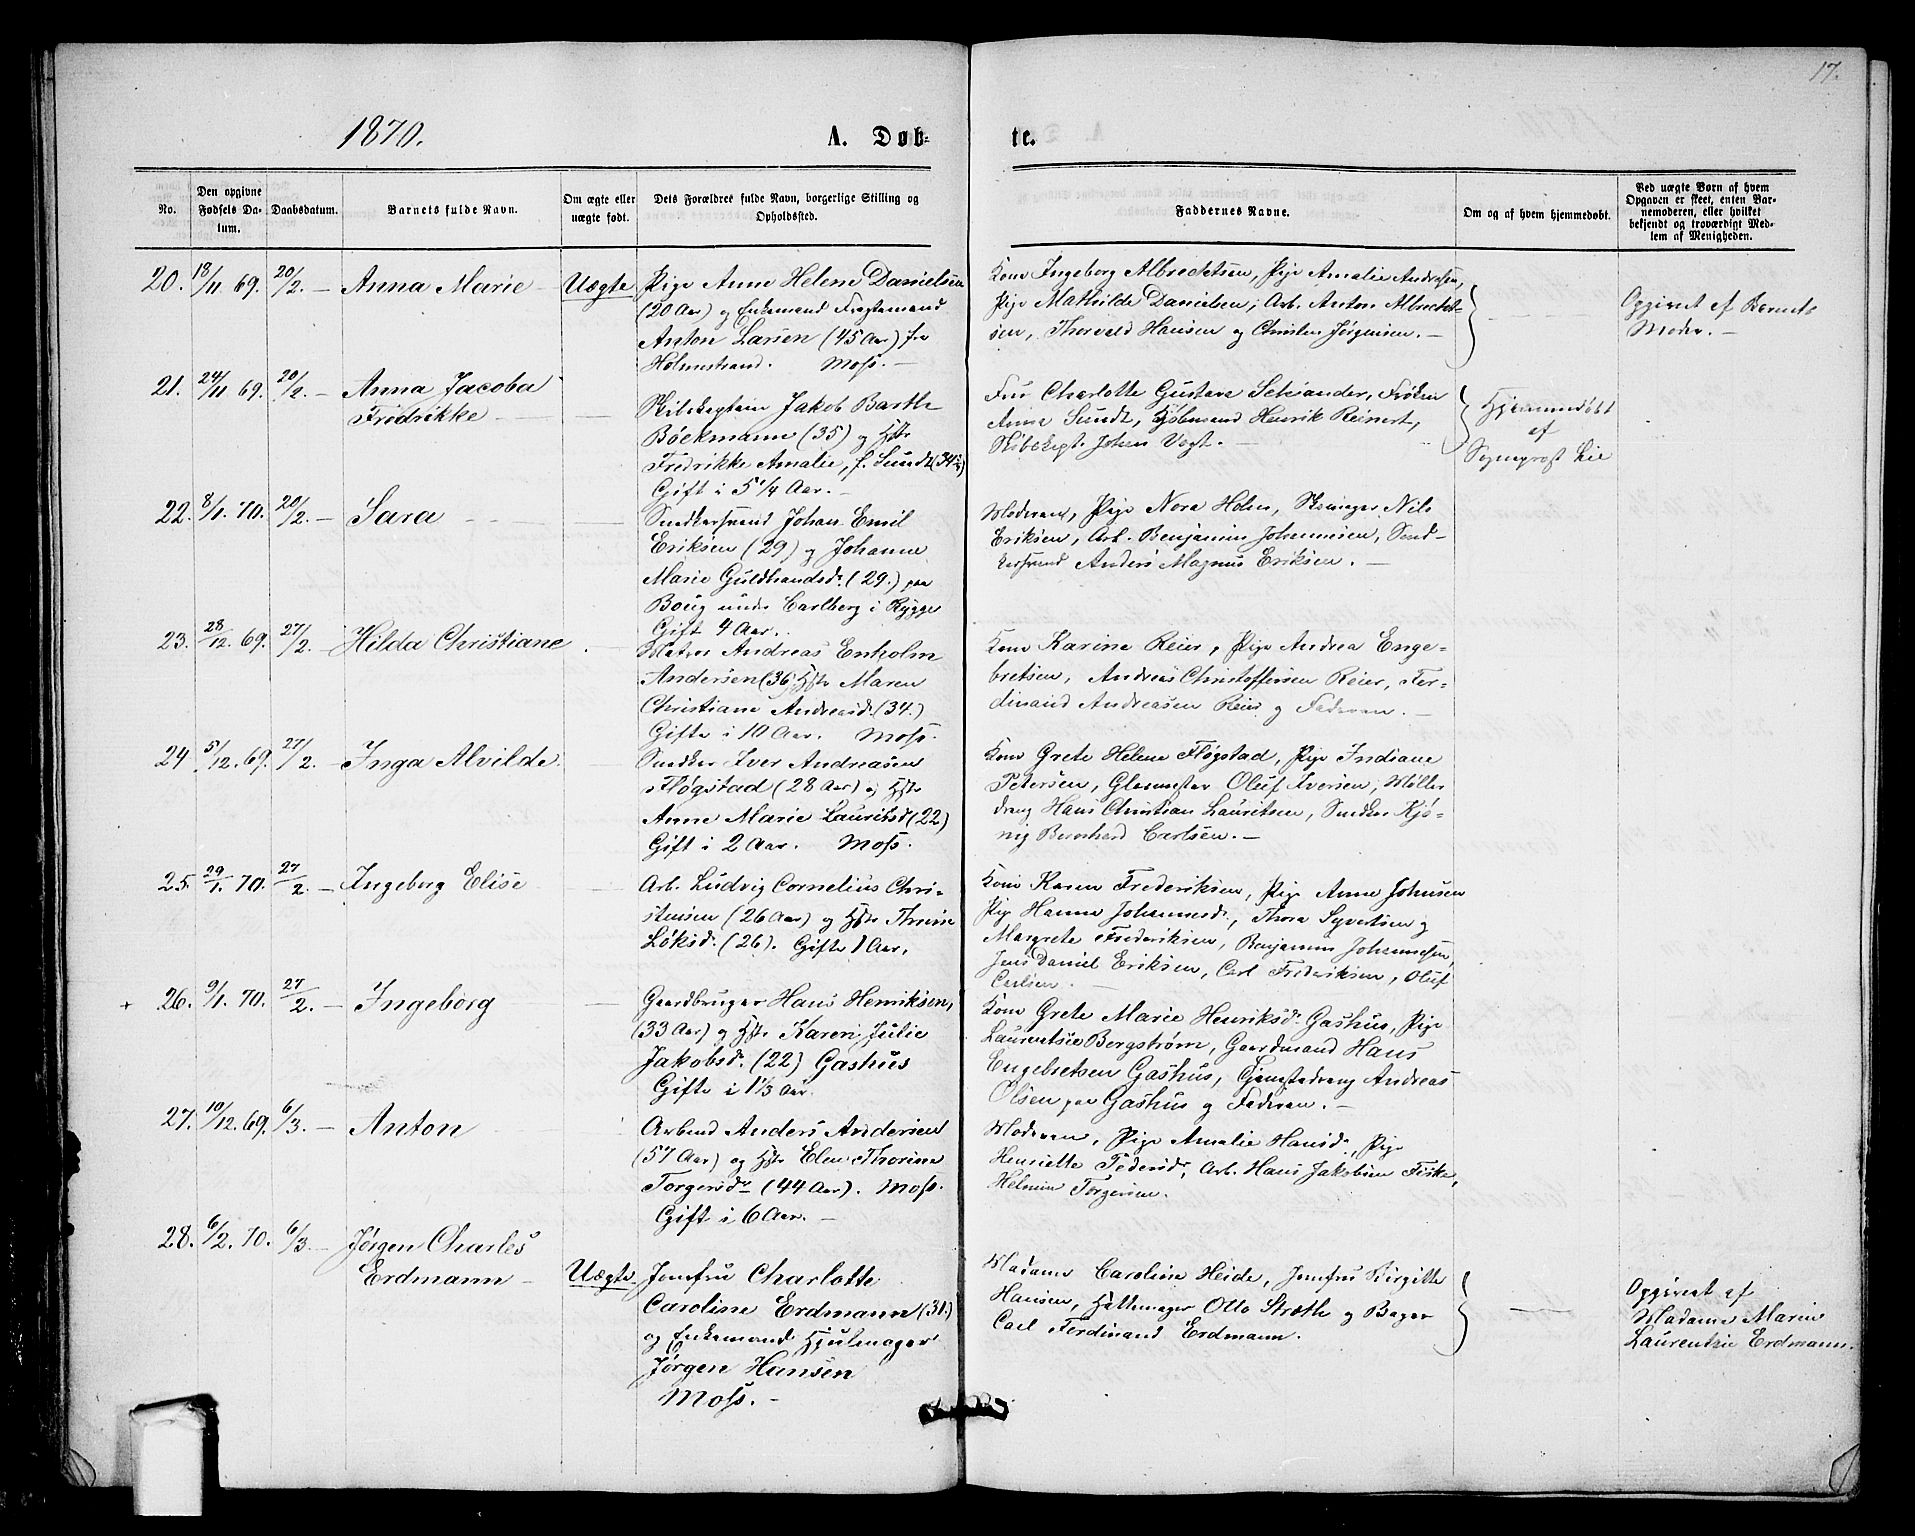 17.
1870.
A. Døb-
te.
No.
Den opgivne
Fødsels Da-
tum.
Daabsdatum.
Barnets fulde Navn.
Om ægte eller
uægte født.
Dets Forældres fulde Navn, borgerlige Stilling og
Opholdssted.
Faddernes Navne.
Om og af hvem hjemmedøbt.
Ved uægte Børn af hvem
Opgaven er skeet, enten Bar-
nemoderen, eller hvilket
bekjendt og troværdigt Med-
lem af Menigheden.
20. 18/11 69. 20/2. — Anna Marie — Uægte
Pige Anne Helene Danielsen
(20 Aar) og Enkemand Fragtemand
Anton Larsen (45 Aar) fra
Holmestrand. Moss. —
Kone Ingeborg Albrechtsen, Pige Amalie Andersen,
Pige Mathilde Danielsen, Arb. Anton Albrecht-
sen, Thorvald Hansen og Christen Jørgensen. —
Opgivet af Barnets
Moder. —
21. 24/11 69. 20/2 — Anna Jacoba
Fredrikke —
Skibskaptein Jakob Barth
Bøckmann (35) og Hstr
Fredrikke Amalie, f. Sundt (34½)
Gift i 5 1/4 Aar. —
Fru Charlotte Gustava Schiander, Frøken
Anna Sundt, Kjøbmand Henrik Reinert,
Skibskapt. Johan Vogt. —
Hjemmedøbt
af
Sogneprost Lie
22. 8/1. 70. 20/2 — Sara
Snedkersvend Johan Emil
Eriksen (29) og Johanne
Marie Guldbrandsd. (29.) paa
Boug under Carlberg i Rygge
Gift 4 Aar.
Moderen, Pige Nora Holm, Skomager Nils
Eriksen, Arb. Benjamin Johannesen, Sned-
kersvend Anders Magnus Eriksen. —
23. 28/12. 69. 27/2 Hilda Christiane
Matros Andreas Enholm
Andersen (36) Hstr Maren
Christiane Andreasd. (34.)
Gifte i 10 Aar. Moss.
Kone Karine Reier, Pige Andrea Enge-
bretsen, Andreas Christoffersen Reier, Fer-
dinand Andreasen Reier og Faderen. —
24 5/12. 69. 27/2. — Inga Alvilde.
Snedker Iver Andreasen
Fløgstad (28 Aar) og Hstr
Anne Marie Lauritsd (22)
Gift i 2 Aar. Moss.
Kone Grete Helene Fløgstad, Pige Indiane
Petersen, Glasmester Oluf Iversen, Møller
dreng Hans Christian Lauritsen, Snedker Kjø-
nig Bernhard Carlsen. —
25. 29/1. 70. 27/2. — Ingeborg Elise
Arb. Ludvig Cornelius Chri-
stensen (26 Aar) og Hstr Thrine
Løksd. (26). Gifte 1 Aar.
Kone Karen Frederiksen, Pige Anne Johnsen
Pige Hanne Johannesd., Thora Syvertsen og
Margrete Frederiksen, Benjamin Johannesen,
Jens Daniel Eriksen, Carl Frederiksen, Oluf
Carlsen. —
+ 26. 9/1. 70. 27/2. — Ingeborg
Gaardbruger Hans Henriksen,
(33 Aar) og Hstr Karen Julie
Jakobsd. (22) Gashus
Gifte i 1 1/3 Aar.
Kone Grete Marie Henriksd. Gashus, Pige
Laurentsie Bergstrøm, Gaardmand Hans
Engebretsen Gashus, Tjenestedreng Andreas
Olsen paa Gashus og Faderen. —
27. 10/12. 69. 6/3. — Anton
Arbmd Anders Andersen
(57 Aar) og Hstr Elen Thorine
Torgersdr (44 Aar). Moss.
Gift i 6 Aar. —
Moderen, Pige Amalie Hansd., Pige
Henriette Pedersdr, Arb. Hans Jakobsen Fiske,
Helmin Torgersen.
28. 6/2. 70. 6/3. — Jørgen Charles
Erdmann — Uægte
Jomfru Charlotte
Caroline Erdmann (31.)
og Enkemand Hjulmager
Jørgen Hansen
Moss. —
Madame Caroline Heide, Jomfru Birgitte
Hansen, Hattemager Otto Stroth og Bager
Carl Ferdinand Erdmann.
Opgivet af
Madame Marie
Laurentsie Erdmann.